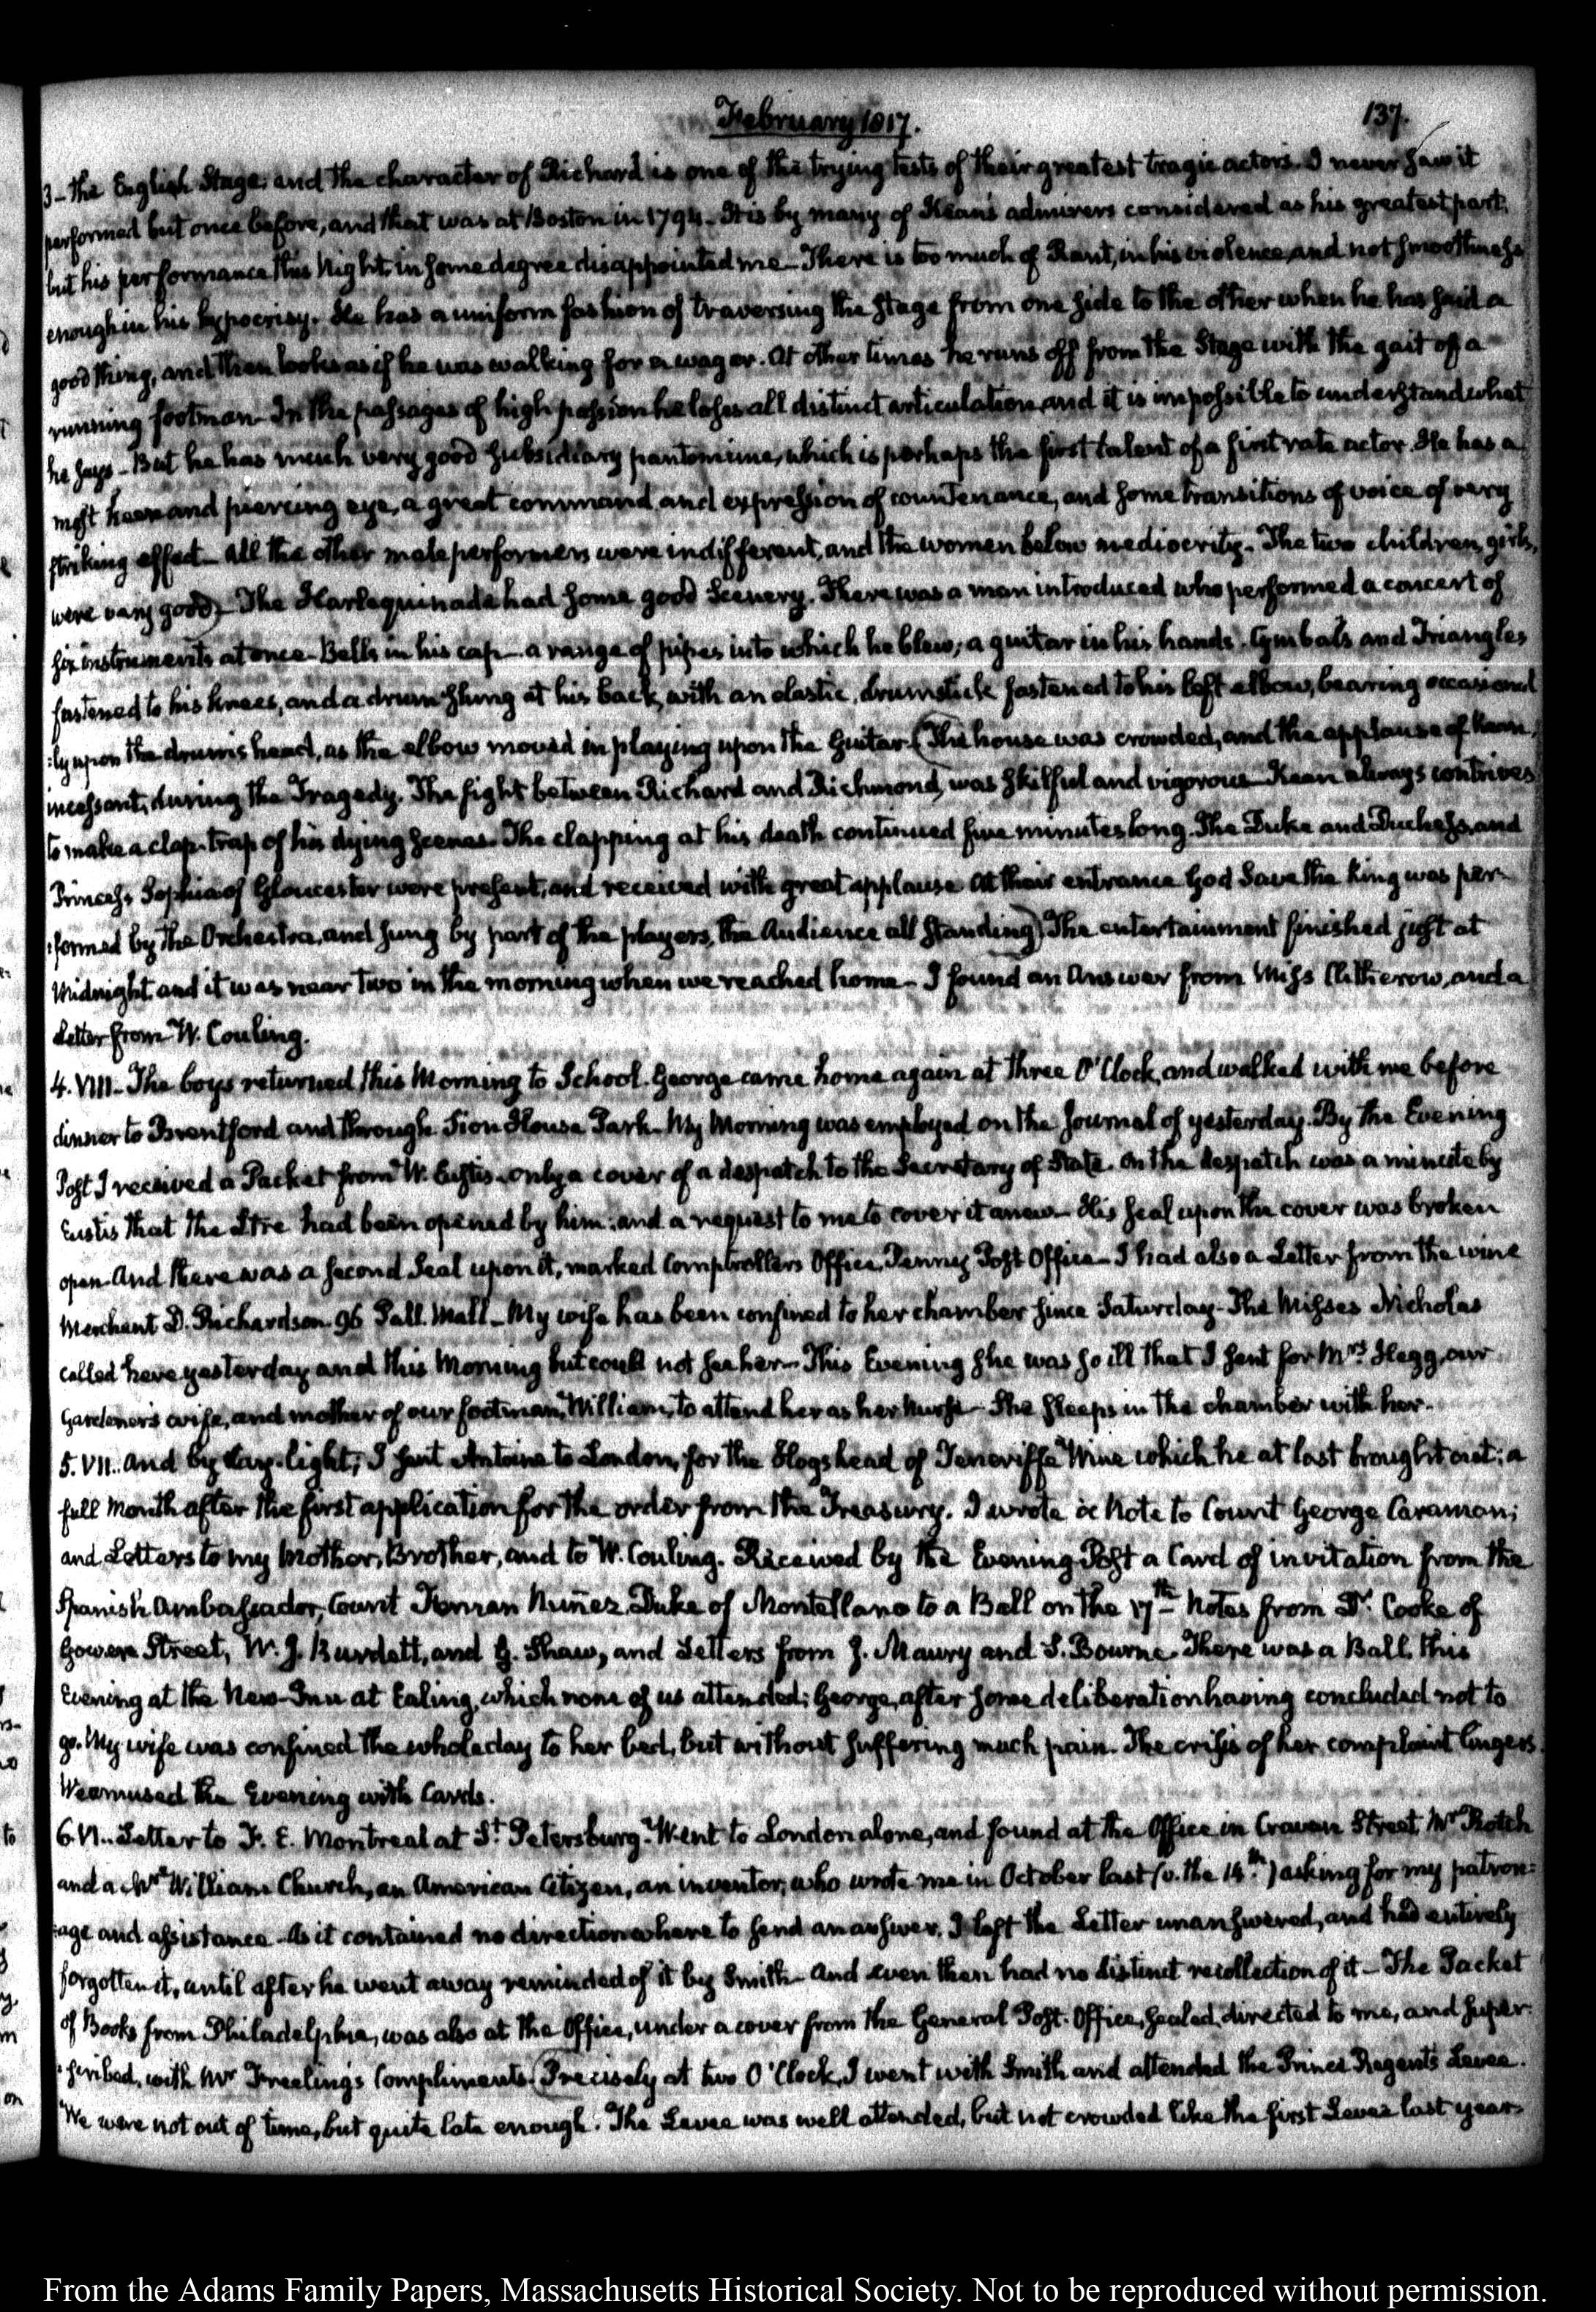 February 1817.
137.
3 - the English Stage; and the character of Richard is one of the trying tests of their greatest tragic actors. I never saw it
performed but once before, and that was at Boston in 1794 - It is by many of Kean's admirers considered as his greatest part,
but his performance this Night, in some degree disappointed me - There is too much of Rant, in his violence, and not smoothness
enough in his hypocrisy. He has a uniform fashion of traversing the Stage from one side to the other when he has said a
good thing, and then looks as if he was walking for a wager. At other times he runs off from the Stage with the gait of a
running footman - In the passages of high passion he loses all distinct articulation and it is impossible to understand what
he says - But he has much very good subsidiary pantomime, which is perhaps the first talent of a first rate actor. He has a
most keen and piercing eye, a great command and expression of countenance, and some transitions of voice of very
striking effect - All the other male performers were indifferent, and the women below mediocrity. The two children, girls,
were very good) - The Harlequinade had some good Scenery. There was a man introduced who performed a concert of
six instruments at once - Bells in his cap - a range of pipes into which he blew; a guitar in his hands. Cymbals and Triangles
fastened to his knees, and a drum slung at his back, with an elastic drumstick fastened to his left elbow, bearing occasional
:ly upon the drum's head, as the elbow moved in playing upon the Guitar. (The house was crowded, and the applause of Kean,
incessant, during the Tragedy. The fight between Richard and Richmond, was skilful and vigorous - Kean always contrives
to make a clap-trap of his dying scenes - The clapping at his death continued five minutes long. The Duke and Duchess, and
Princess Sophia of Gloucester were present, and received with great applause At their entrance God Save the King was per-
:formed by the Orchestra, and sung by part of the players, the Audience all standing) The entertainment finished just at
Midnight, and it was near two in the morning when we reached home - I found an Answer from Miss Clitherow, and a
Letter from W. Couling.
4. VIII - The boys returned this Morning to School. George came home again at three O'Clock, and walked with me before
dinner to Brentford and through Sion House Park - My Morning was employed on the Journal of yesterday. By the Evening
Post I received a Packet from W. Eustis - only a cover of a despatch to the Secretary of State. On the despatch was a minute by
Eustis that the Ltre had been opened by him: and a request to me to cover it anew - His seal upon the cover was broken
open. And there was a second Seal upon it, marked Comptrollers Office, Penny Post Office - I had also a Letter from the wine
Merchant D. Richardson. 96 Pall. Mall - My wife has been confined to her chamber since Saturday - The Misses Nicholas
called here yesterday and this Morning but could not see her - This Evening she was so ill that I sent for Mrs. Hegg, our
Gardener's wife, and mother of our footman, William, to attend her as her Nurse - She sleeps in the chamber with her.
5. VII.. And by day-light; I sent Antoine to London, for the Hogshead of Teneriffe Wine which he at last brought out; a
full Month after the first application for the order from the Treasury. I wrote a Note to Count George Caraman;
and Letters to my Mother, Brother, and to W. Couling. Received by the Evening Post a Card of invitation from the
Spanish Ambassador, Count Fernan Nuñez Duke of Montellano to a Ball on the 17th. Notes from Dr. Cooke of
Gower Street, W. J. Burdett, and G. Shaw, and Letters from J. Maury and S. Bourne. There was a Ball this
Evening at the New-Inn at Ealing, which none of us attended; George, after some deliberation having concluded not to
go. My wife was confined the whole day to her bed, but without suffering much pain. The crisis of her complaint lingers.
We amused the Evening with Cards.
6. VI.. Letter to F. E. Montreal at St. Petersburg. Went to London alone, and found at the Office in Craven Street Mr Rotch
and a Mr William Church, an American Citizen, an inventor, who wrote me in October last (v. the 14th.) asking for my patron:
:age and assistance - As it contained no direction where to send an answer, I left the Letter unanswered, and had entirely
forgotten it, until after he went away reminded of it by Smith - And even then had no distinct recollection of it - The Packet
of Books from Philadelphia, was also at the Office, under a cover from the General Post. Office, sealed, directed to me, and super:
:scribed, with Mr Freeling's Compliments. (Precisely at two O'Clock, I went with Smith and attended the Prince Regent's Levee.
We were not out of time, but quite late enough. The Levee was well attended, but not crowded like the first Levee last year.
From the Adams Family Papers, Massachusetts Historical Society. Not to be reproduced without permission.